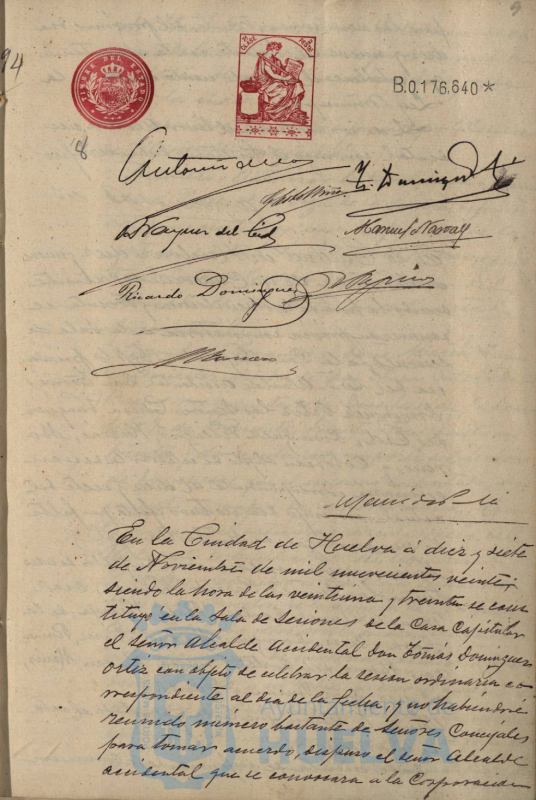 9
94
TIMBRE DEL ESTADO
B.0.176,640 *
8
Vazquez del Cid
Manuel Narvaez
Ricardo Dominguez
En la Ciudad de Huelva á diez y siete
de Noviembre de mil novecientos veinte
siendo la hora de las veintiuna y treinta se cons
tituyó en la Sala de Sesiones de la Casa Capitular
el señor Alcalde Accidental Don Tomás Dominguez
Ortiz con objeto de celebrar la sesion ordinaria co
rrespondiente al dia de la fecha, y no habiendose
reunido número bastante de Señores Concejales
para tomar acuerdo, dispuso el señor Alcalde
accidental que se convocara á la Corporacion